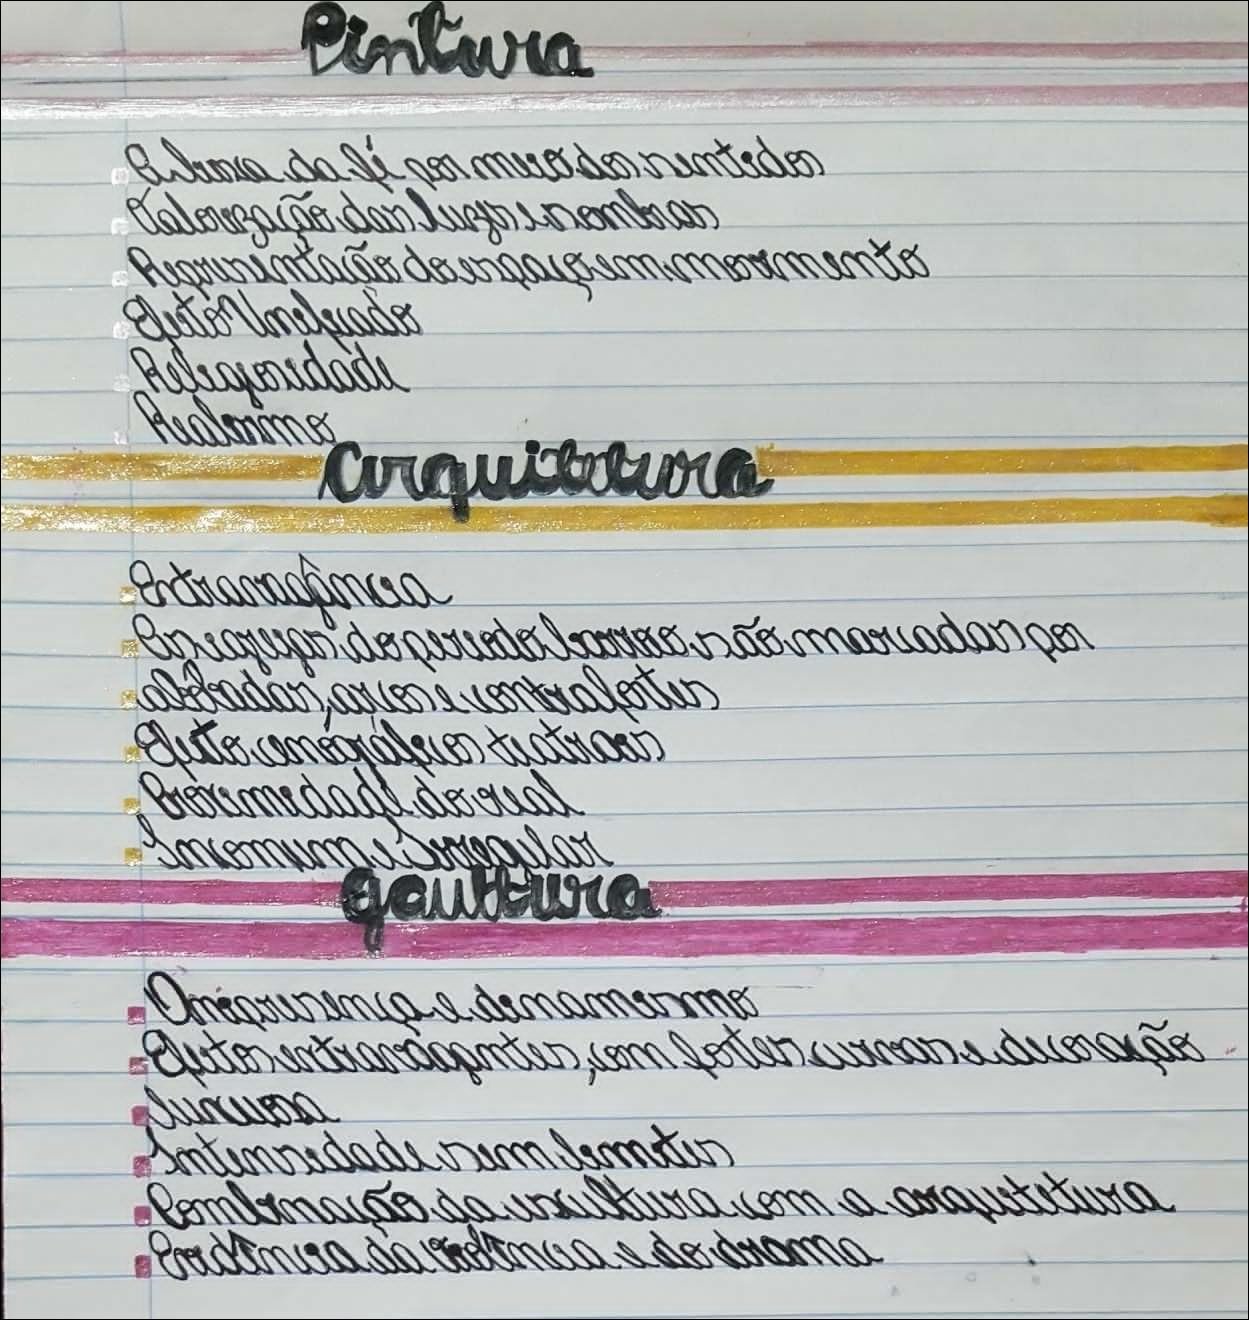 Pintura
A busca da fé por meio dos sentidos
Valorização das luzes e sombras
Representação do espaço em movimento
Efeito Unificado
Religiosidade
Realismo
Arquitetura
Extravagância
As igrejas do período barroco, são marcadas por
abóbadas, arcos e contrafortes
Efeito cenográficos teatrais
Proximidade do real
Incomum e Irregular
Escultura
Onipresença e dinamismo
Efeitos extravagantes, com fortes curvas e decoração
luxuosa
Intensidade sem limites
Combinação da escultura com a arquitetura
Evidência da violência e do drama